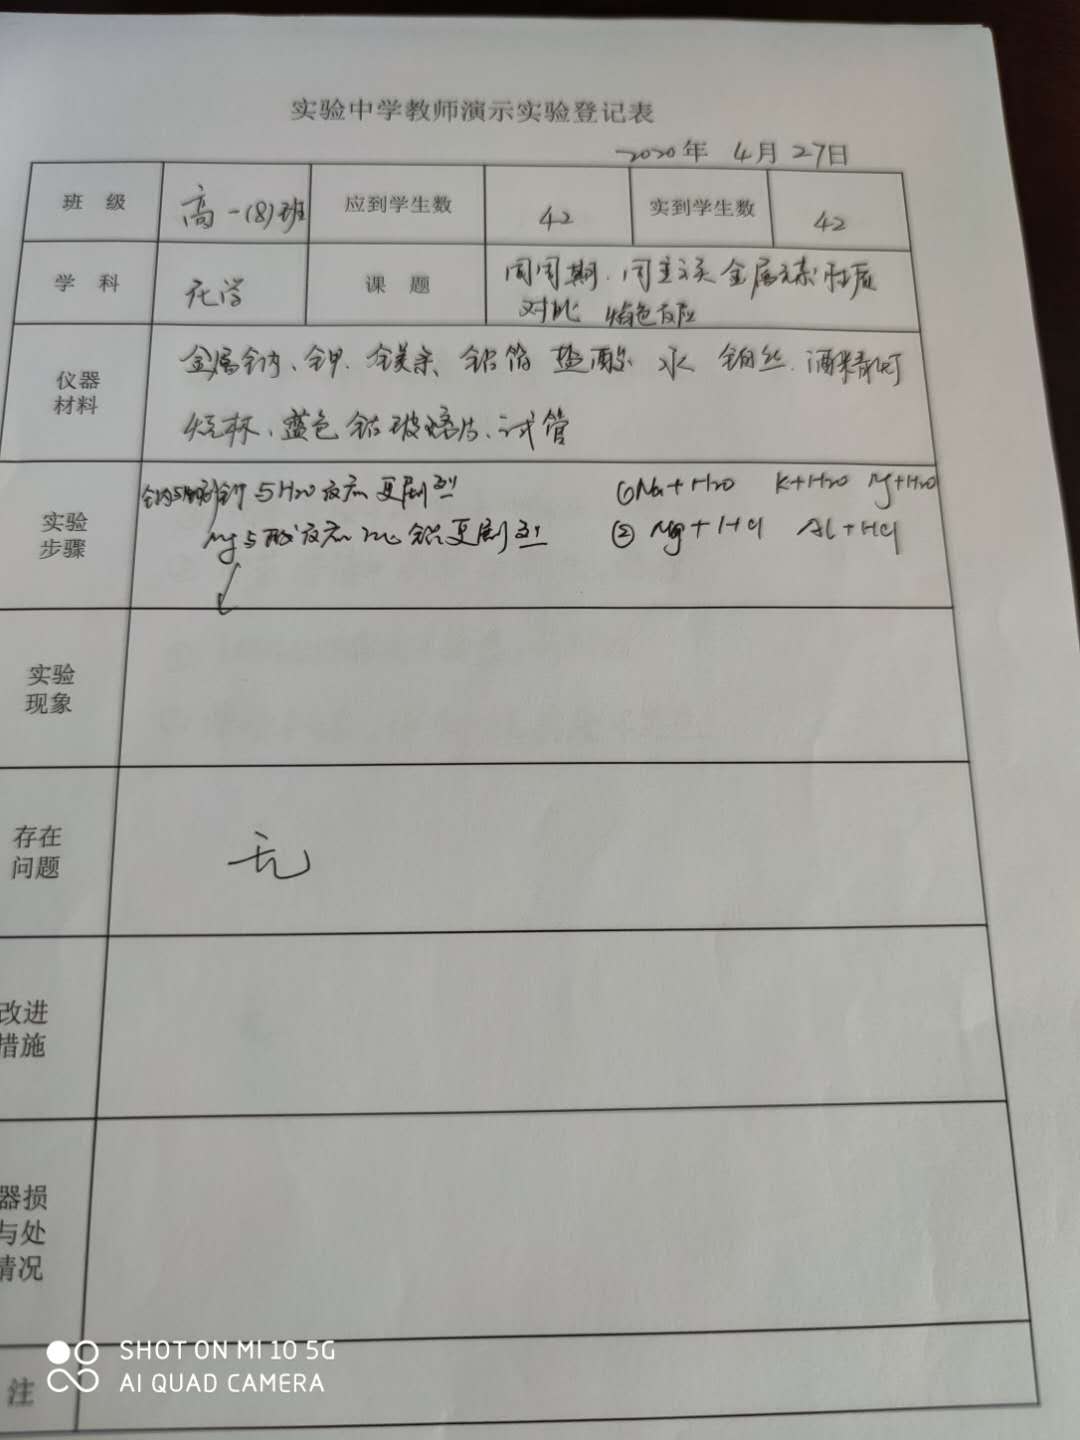 实验中学教师演示实验登记表
2020年 4月27日
班 级 高一(8)班 应到学生数 42 实到学生数 42
学 科 化学 课 题 同周期、同主族金属元素性质
对比 焰色反应
仪器 金属钠、钾、镁条、铝箔 盐酸 水 铂丝、酒精灯
材料 烧杯、蓝色钴玻璃片、试管
实验 钾与H2O反应更剧烈 ①Na+H2O K+H2O Mg+H2O
步骤 Mg与酸反应比铝更剧烈 ②Mg+HCl Al+HCl
实验
现象
存在 无
问题
改进
措施
器损
与处
情况
注
SHOT ON MI 10 5G
AI QUAD CAMERA